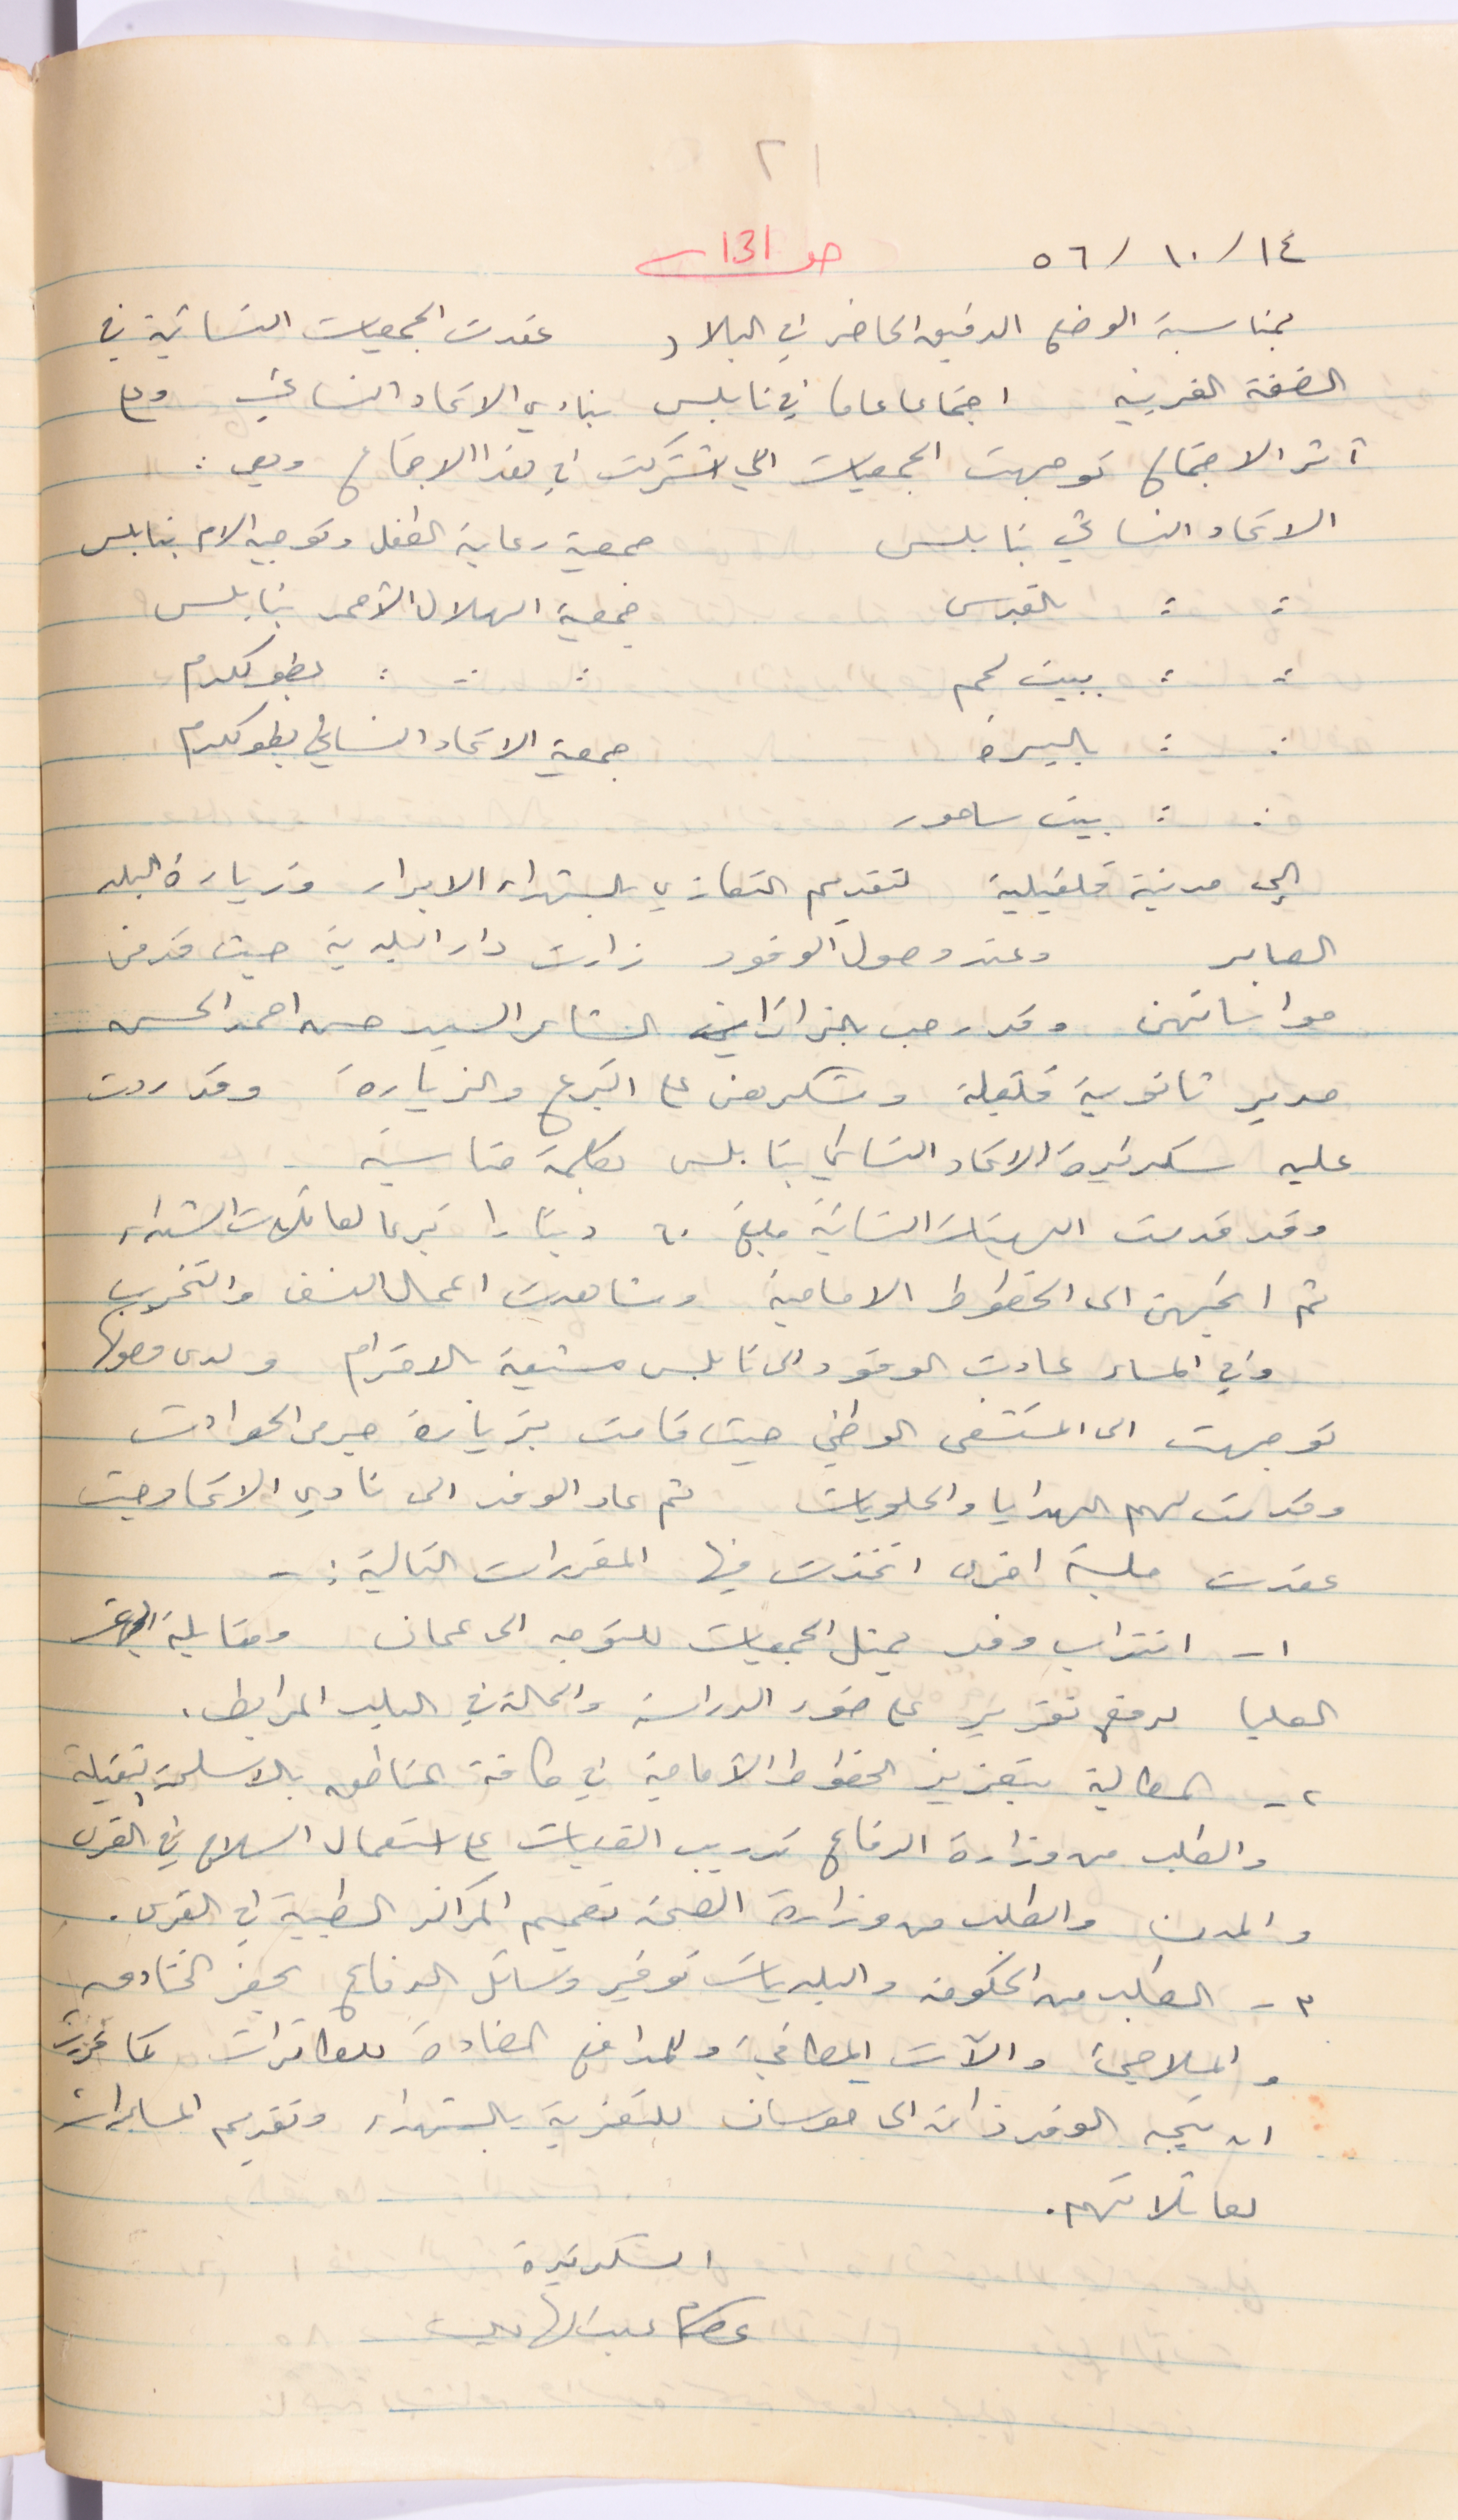 ٢١
١٤/ ١٠/ ٥٦ ص 131
بمناسبة الوضع الدقيق الحاضر في البلاد عقدت الجمعيات النسائية في
الضفة الغربية اجتماعا عاما في نابلس بنادي الاتحاد النسائي وعلى
آثر الاجتماع توجهت الجمعيات التي اشتركت في هذا الاجتماع وهي :
الاتحاد النسائي بنابلس جمعية رعاية الطفل وتوجيه الام بنابلس
: : بالقدس جمعية الهلال الأحمر بنابلس
: : ببيت لحم : : : بطولكرم
: : بالبيرة جمعية الاتحاد النسائي بطولكرم
: : بيت ساحور
إلى مدينة قلقيلية لتقديم التعازي بالشهداء الابرار وزيارة البلد
الصابر وعند وصول الوفود زارت دار البلدية حيث قدمن
مواساتهن وقد رحب بالزائرات الشاعر السيد حسن احمد الحسن
مدير ثانوية قلقيلة وشكرهن على التبرع والزيارة وقد ردت
عليه سكرتيرة الاتحاد النسائي بنابلس بكلمة مناسبة
وقد قدمت الهيئات النسائية مبلغ ٦٠ دينارا تبرعا لعائلات الشهداء
ثم اتجهن الى الخطوط الامامية وشاهدت اعمال النسف والتخريب
وفي المساء عادت الوفود الى نابلس مشيعة بالاحترام ولدى وصولها
توجهت الى المستشفى الوطني حيث قامت بزيارة جرحى الحوادث
وقدمت لهم الهدايا والحلويات ثم عاد الوفد الى نادي الاتحاد حيث
عقدت جلسة اخرى اتخذت فيها المقررات التالية :-
١- انتداب وفد يمثل الجمعيات للتوجه الى عمان ومقابلة
العليا لرفع تقرير على ضوء الدراسة والحالة في البلد المرابط.
٢- المطالبة بتعزيز الخطوط الأمامية في كافة المناطق بالاسلحة الثقيلة
والطلب من وزارة الدفاع تدريب الفتيات على استعمال السلاح في القرى
والمدن والطلب من وزارة الصحة تعميم المراكز الطبية في القرى.
٣- الطلب من الحكومة والبلديات توفير وسائل الدفاع بحفر الخنادق
والملاجئ والآت المطافئ والمدافع المضادة للطائرات كما تقرر
ان يتجه الوفد ذاته الى حوسان للتعزية بالشهداء وتقديم المساعدات
لعائلاتهم.
السكرتيرة
عصام عبد الهادي